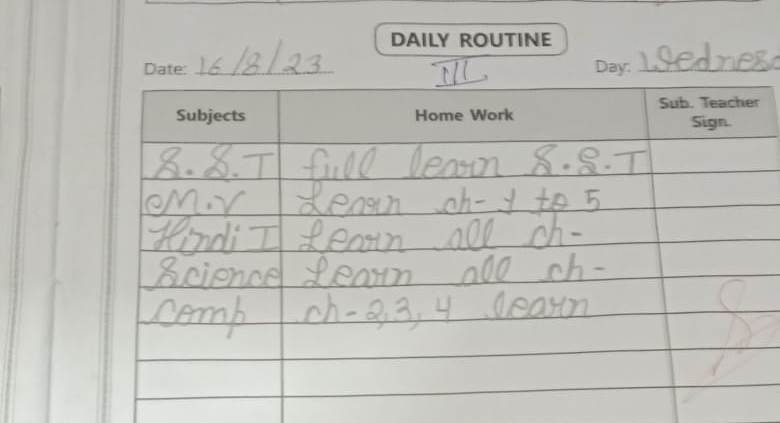 DAILY ROUTINE
Date: 16/8/23 III Day: Wednesd
Subjects Home Work Sub. Teacher Sign.
S.S.T full learn S.S.T
M.V Learn ch-1 to 5
Hindi I Learn all ch-
Science Learn all ch-
comp ch-2,3,4 learn